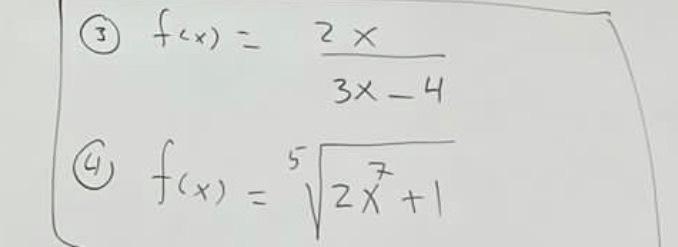 ③ f(x) = 2x / 3x - 4
④ f(x) = ⁵√(2x⁷ + 1)